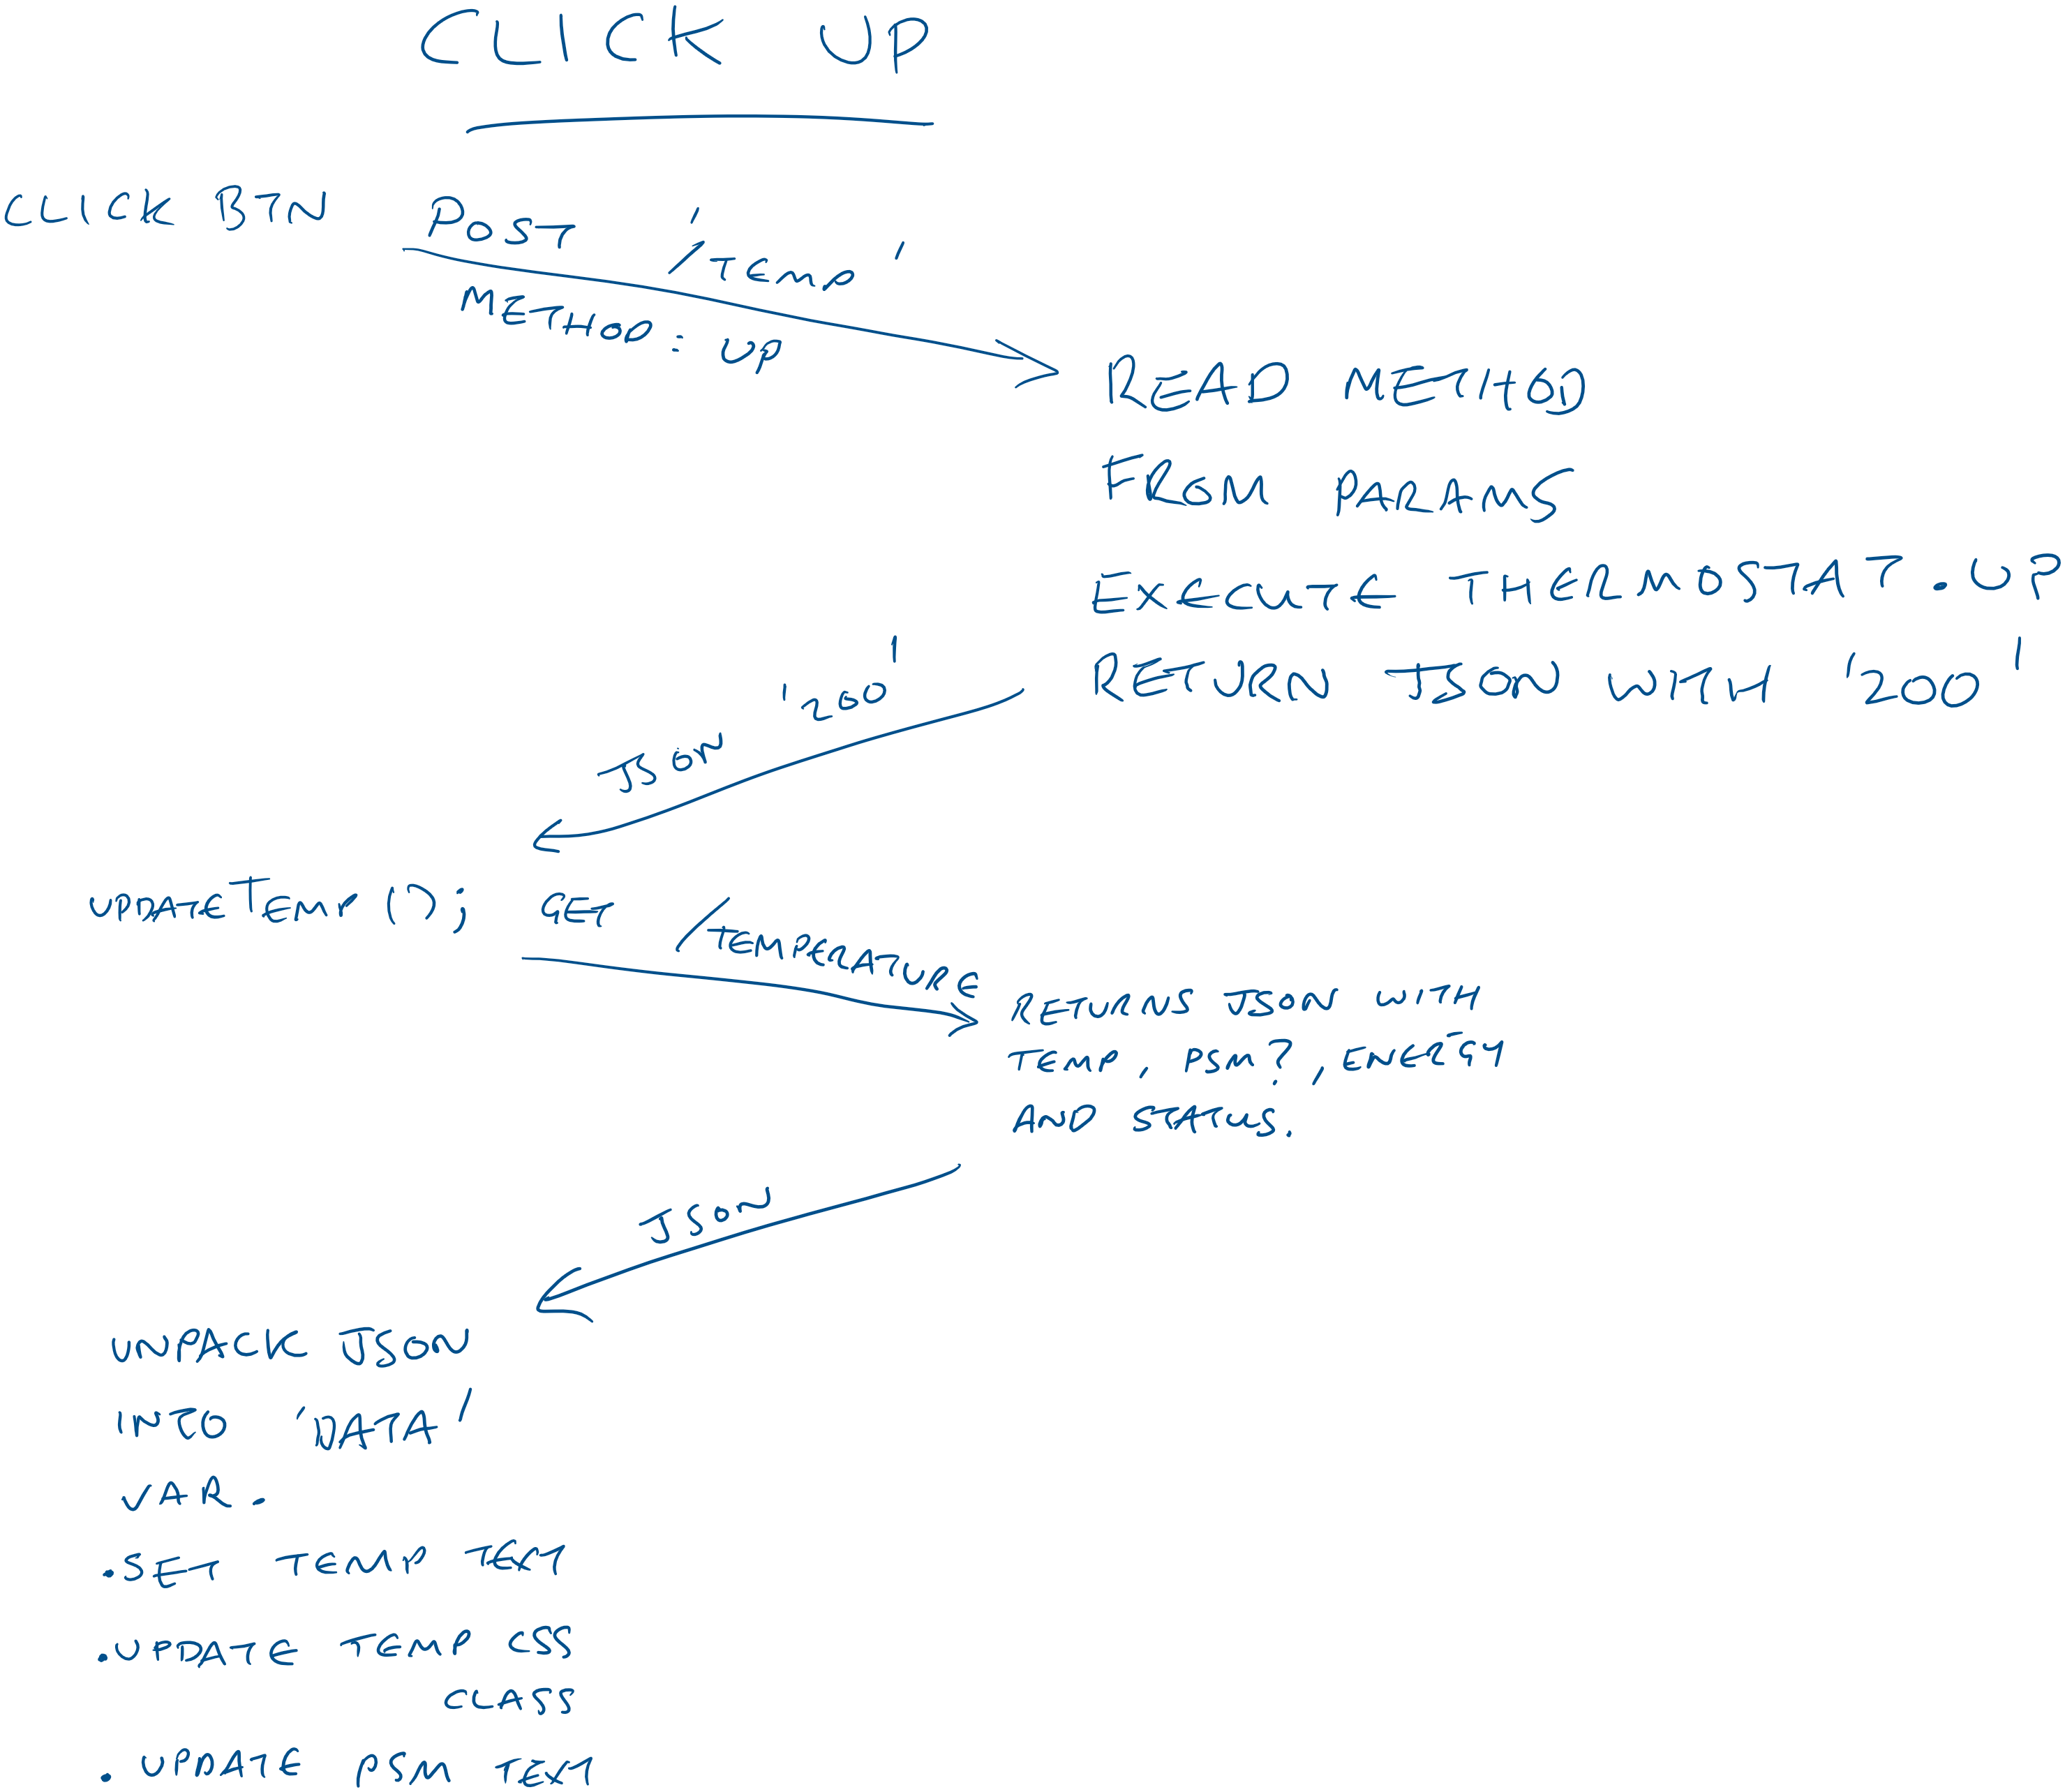 CLICK UP
CLICK BTN
POST '/TEMP'
METHOD: UP
READ METHOD
FROM PARAMS
EXECUTE THERMOSTAT.UP
RETURN JSON WITH '200'
JSON '200'
UPDATETEMP();
GET /TEMPERATURE
RETURNS JSON WITH
TEMP, PSM?, ENERGY
AND STATUS.
JSON
UNPACK JSON
INTO 'DATA'
VAR.
. SET TEMP TEXT
. UPDATE TEMP CSS
CLASS
. UPDATE PSM TEXT